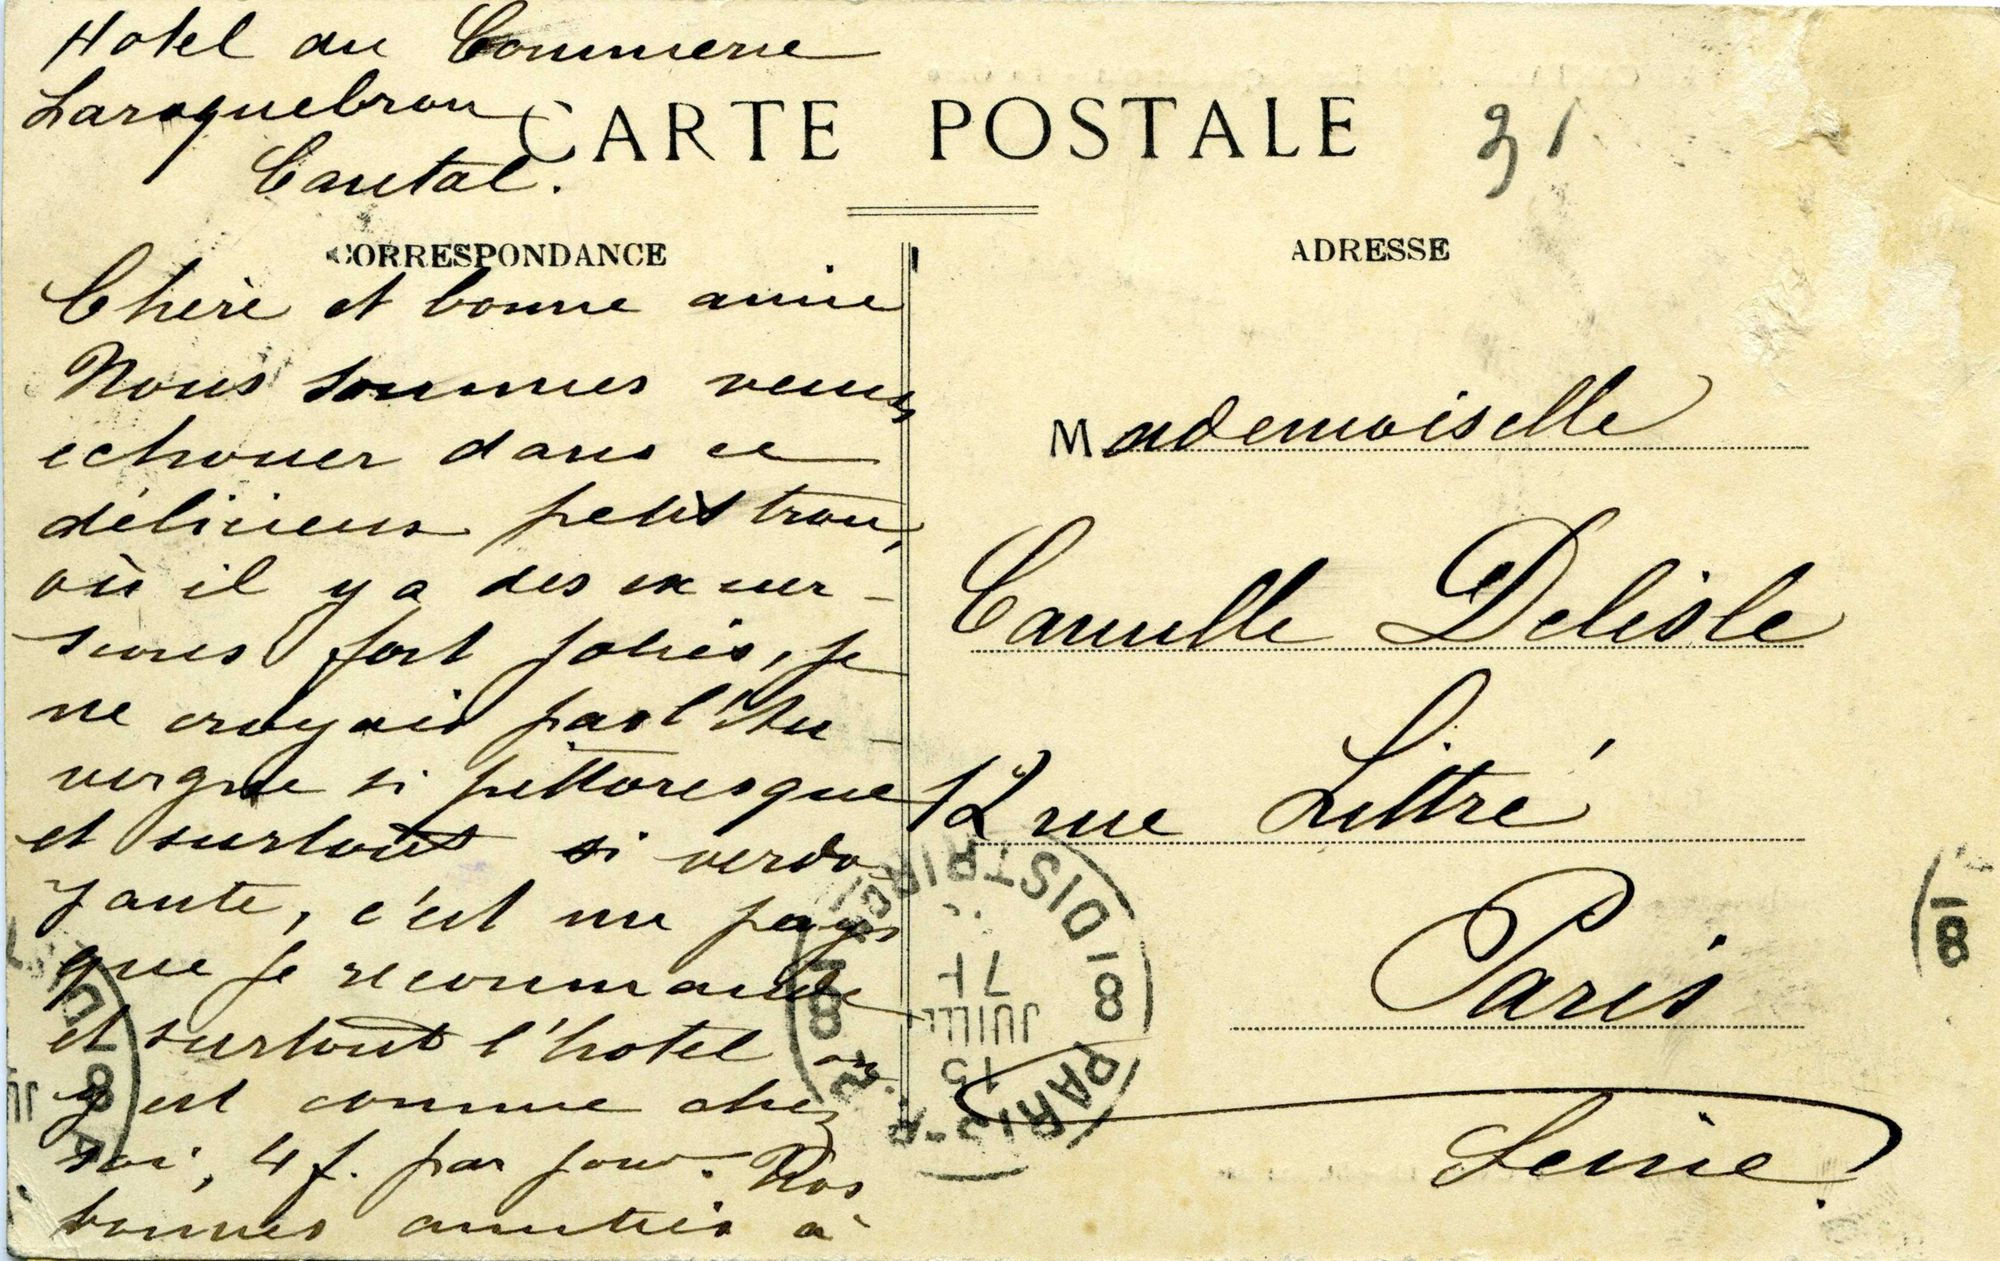 Hotel du Commerce
Laroquebrou
Cantal.
CARTE POSTALE
31
CORRESPONDANCE
ADRESSE
Chère et bonne amie
Nous sommes venus
echouer dans ce
délicieux petit trou,
où il y a des excur-
sions fort jolies, je
ne croyais pas l'Au-
vergne si pittoresque
et surtout si verdo-
yante, c'est un pays
que je recommande
et surtout l'hotel on
y est comme chez
soi, 4 f. par jour. Nos
bonnes amitiés à
Mademoiselle
Camille Delisle
12 rue Littré
Paris
Seine.
PARIS
18
DISTRIB
18
15
JUILL